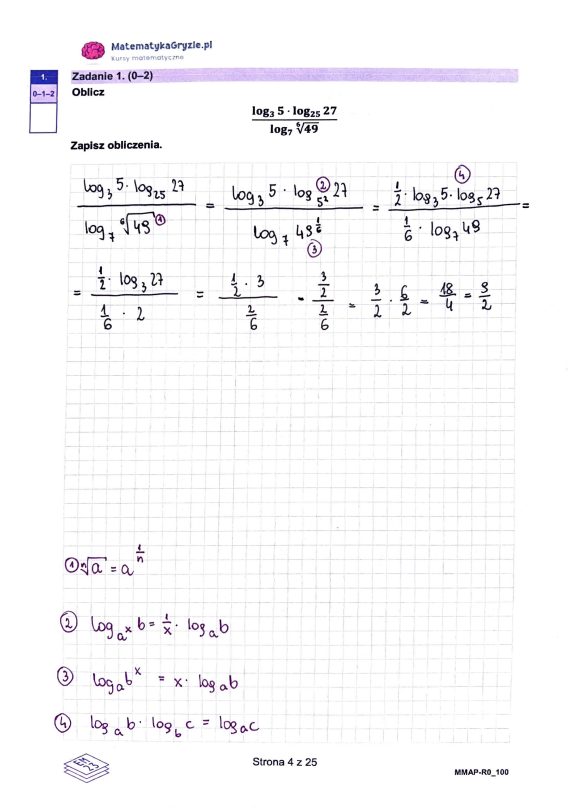 MatematykaGryzie.pl
Kursy matematyczne
1. Zadanie 1. (0–2)
0–1–2 Oblicz
$\frac{\log_3 5 \cdot \log_{25} 27}{\log_7 \sqrt[6]{49}}$
Zapisz obliczenia.
$\frac{\log_3 5 \cdot \log_{25} 27}{\log_7 \sqrt[6]{49}}$ ① = $\frac{\log_3 5 \cdot \log_{5^2} 27}{\log_7 49^{\frac{1}{6}}}$ ② ③ = $\frac{\frac{1}{2} \cdot \log_3 5 \cdot \log_5 27}{\frac{1}{6} \cdot \log_7 49}$ ④ =
= $\frac{\frac{1}{2} \cdot \log_3 27}{\frac{1}{6} \cdot 2}$ = $\frac{\frac{1}{2} \cdot 3}{\frac{2}{6}}$ = $\frac{\frac{3}{2}}{\frac{2}{6}}$ = $\frac{3}{2} \cdot \frac{6}{2}$ = $\frac{18}{4}$ = $\frac{9}{2}$
① $\sqrt[n]{a} = a^{\frac{1}{n}}$
② $\log_{a^x} b = \frac{1}{x} \cdot \log_a b$
③ $\log_a b^x = x \cdot \log_a b$
④ $\log_a b \cdot \log_b c = \log_a c$
Strona 4 z 25
MMAP-R0_100